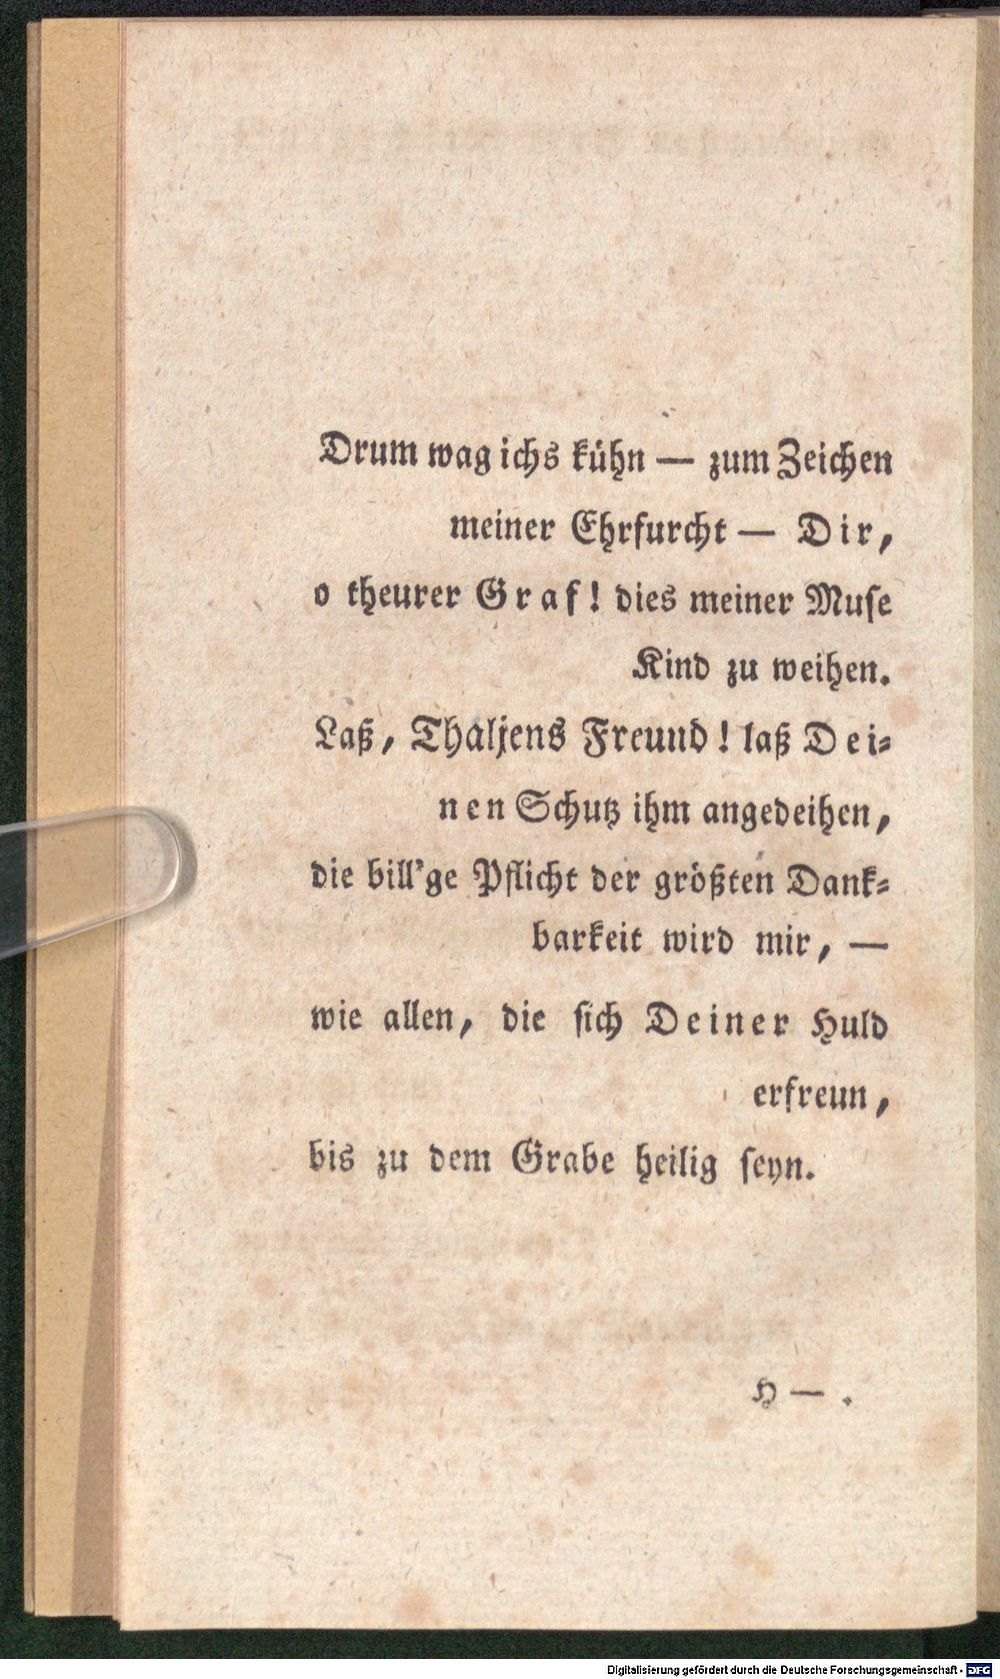 Drum wag ichs kühn — zum Zeichen
meiner Ehrfurcht — Dir,
o theurer Graf! dies meiner Muse
Kind zu weihen.
Laß, Thaljens Freund! laß Dei-
nen Schutz ihm angedeihen,
die bill'ge Pflicht der größten Dank-
barkeit wird mir, —
wie allen, die sich Deiner Huld
erfreun,
bis zu dem Grabe heilig seyn.
H — .
Digitalisierung gefördert durch die Deutsche Forschungsgemeinschaft - DFG